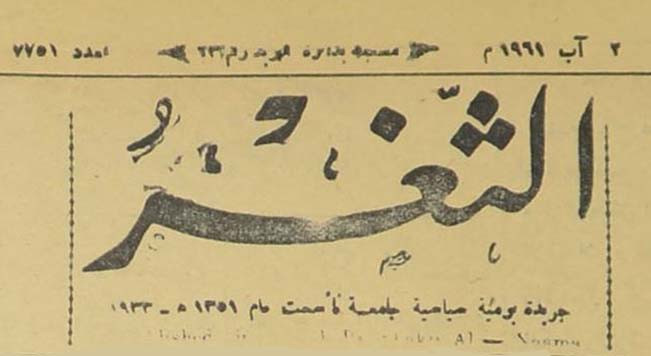 ٢ آب ١٩٦١ م مسجلة بدائرة البريد رقم ٢٣٦ العدد ٧٧٥١
الثَّغْرُ
جريدة يومية سياسية جامعة تأسست عام ١٣٥١ ه‍ - ١٩٣٣
Al —